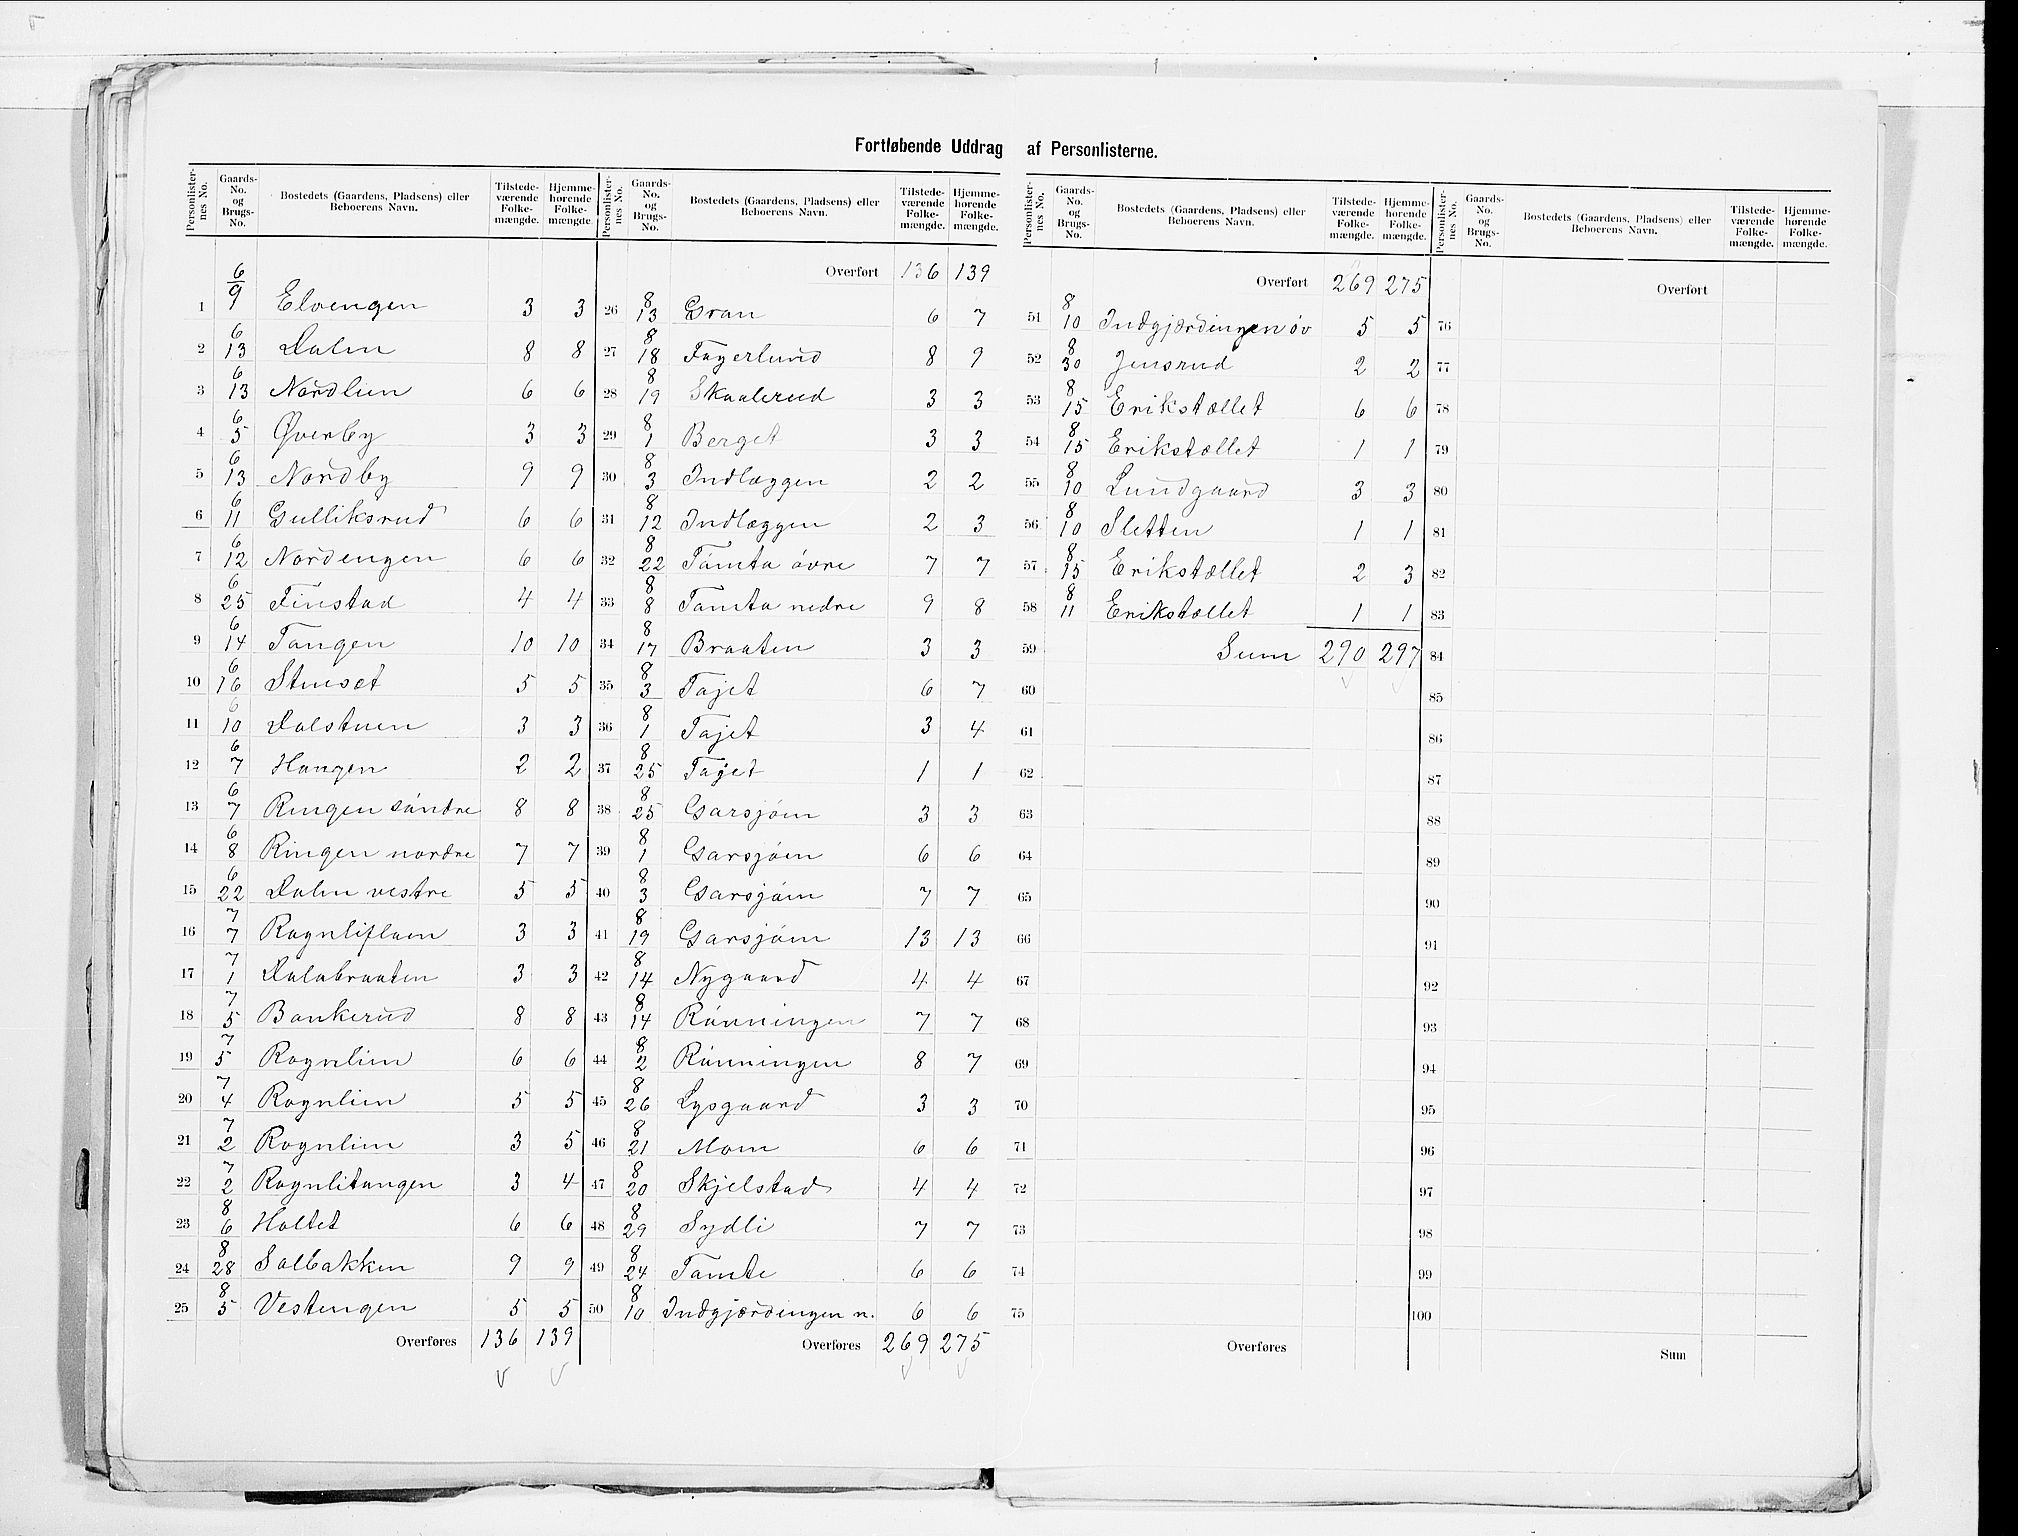 Fortløbende Uddrag af Personlisterne.
Personlister-nes No. Gaards-No. og Brugs-No. Bostedets (Gaardens, Pladsens) eller Beboerens Navn. Tilstede-værende Folke-mængde. Hjemme-hørende Folke-mængde.
1 6/9 Elvengen 3 3
2 6/13 Dalm 8 8
3 6/13 Nordlien 6 6
4 6/5 Øverby 3 3
5 6/13 Nordby 9 9
6 6/11 Gulliksrud 6 6
7 6/12 Nordengen 6 6
8 6/25 Finstad 4 4
9 6/14 Tangen 10 10
10 6/16 Stuset 5 5
11 6/10 Dalstuen 3 3
12 6/7 Haugen 2 2
13 6/7 Ringen søndre 8 8
14 6/8 Ringen nordre 7 7
15 6/22 Dalm vestre 5 5
16 7/7 Rognliflam 3 3
17 7/1 Dalabraaten 3 3
18 7/5 Bankerud 8 8
19 7/5 Rognlien 6 6
20 7/4 Rognlien 5 5
21 7/2 Rognlien 3 5
22 7/2 Rognlitangen 3 4
23 8/6 Holtet 6 6
24 8/28 Solbakken 9 9
25 8/5 Vestengen 5 5
Overføres 136 139
Personlister-nes No. Gaards-No. og Brugs-No. Bostedets (Gaardens, Pladsens) eller Beboerens Navn. Tilstede-værende Folke-mængde. Hjemme-hørende Folke-mængde.
Overført 136 139
26 8/13 Gran 6 7
27 8/18 Fagerlund 8 9
28 8/19 Skaalerud 3 3
29 8/1 Berget 3 3
30 8/3 Indlæggen 2 2
31 8/12 Indlæggen 2 3
32 8/22 Tomta øvre 7 7
33 8/8 Tomta nedre 9 8
34 8/17 Braaten 3 3
35 8/3 Tajet 6 7
36 8/1 Tajet 3 4
37 8/25 Tajet 1 1
38 8/25 Garsjøm 3 3
39 8/1 Garsjøm 6 6
40 8/3 Garsjøm 7 7
41 8/19 Garsjøm 13 13
42 8/14 Nygaard 4 4
43 8/14 Rønningen 7 7
44 8/2 Rønningen 8 7
45 8/26 Lysgaard 3 3
46 8/21 Mom 6 6
47 8/20 Skjelstad 4 4
48 8/29 Sydli 7 7
49 8/24 Tomte 6 6
50 8/10 Indgjærdingen n. 6 6
Overføres 269 275
Personlister-nes No. Gaards-No. og Brugs-No. Bostedets (Gaardens, Pladsens) eller Beboerens Navn. Tilstede-værende Folke-mængde. Hjemme-hørende Folke-mængde.
Overført 269 275
51 8/10 Indgjærdingen øv 5 5
52 8/30 Jensrud 2 2
53 8/15 Erikstællet 6 6
54 8/15 Erikstællet 1 1
55 8/10 Lundgaard 3 3
56 8/10 Sletten 1 1
57 8/15 Erikstællet 2 3
58 8/11 Erikstællet 1 1
59 Sum 290 297
60
61
62
63
64
65
66
67
68
69
70
71
72
73
74
75
Overføres
Personlister-nes No. Gaards-No. og Brugs-No. Bostedets (Gaardens, Pladsens) eller Beboerens Navn. Tilstede-værende Folke-mængde. Hjemme-hørende Folke-mængde.
Overført
76
77
78
79
80
81
82
83
84
85
86
87
88
89
90
91
92
93
94
95
96
97
98
99
100
Sum